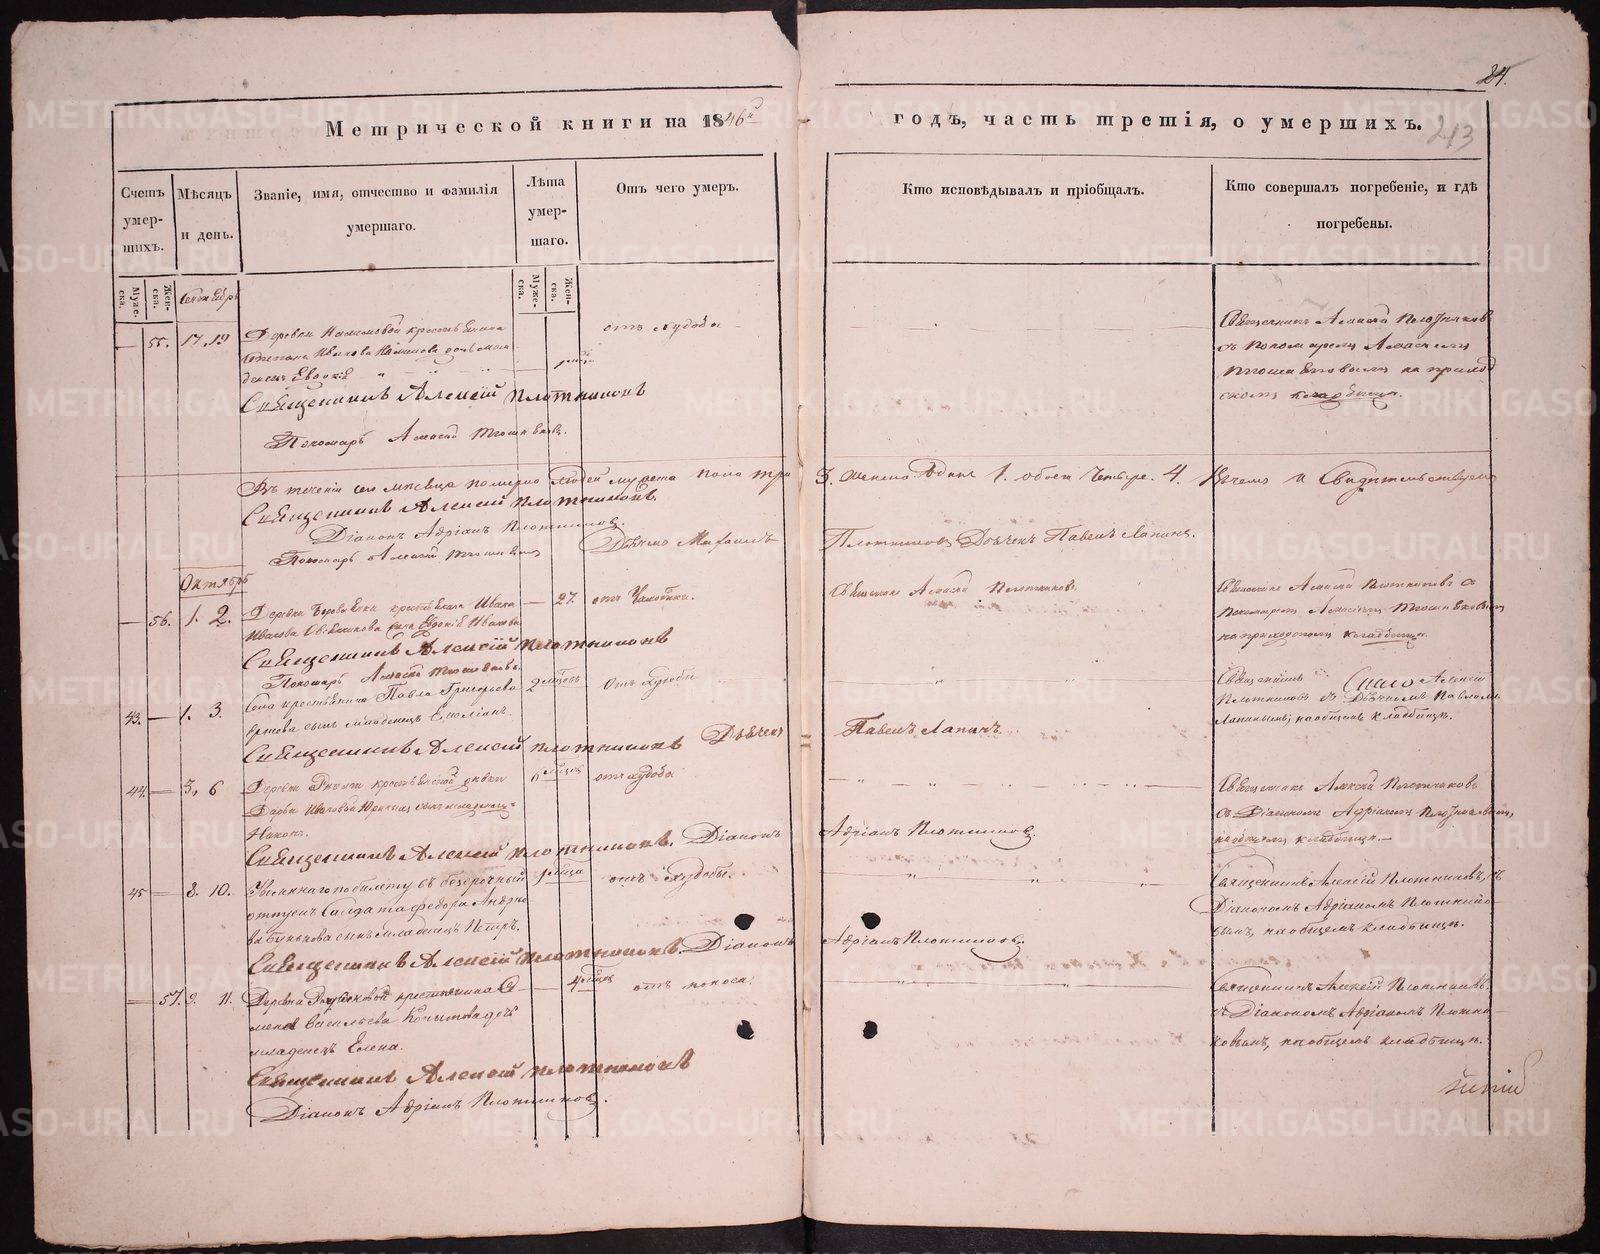 24.
213
Метрической книги на 1846й
годъ, часть третія, о умершихъ.
Счетъ умер-шихъ.
Мѣсяцъ и день.
Званіе, имя, отчество и фамилія умершаго.
Лѣта умер-шаго.
Отъ чего умеръ.
Кто исповѣдывалъ и пріобщалъ.
Кто совершалъ погребеніе, и гдѣ погребены.
Муже-ска.
Жен-ска.
Муже-ска.
Жен-ска.
Сентябрь
55. 17. 19
Деревни
дочь мла-
денецъ Евдокія
отъ худобы
Священникъ Алексѣй Плотниковъ
съ Пономаремъ Алексѣемъ
на приход
скомъ кладбищѣ.
Священникъ Алексій Плотниковъ
Пономарь Алексѣй
Въ теченіи сего мѣсяца померло людей мужеска пола три 3. женска одна 1. обоего четыре. 4. Въ чемъ и Свидѣтельствуемъ
Священникъ Алексѣй Плотниковъ.
Діаконъ Адріанъ Плотниковъ.
Пономарь Алексѣй
Дьячекъ Михаилъ Плотниковъ Дьячекъ Павелъ Лапинъ.
Октябрь
56. 1. 2.
Деревни крестьянина Ивана
Иванова жена Евдокія Иванова
27.
отъ Чахотки.
Священникъ Алексѣй Плотниковъ.
Священникъ Алексѣй Плотниковъ съ
Пономаремъ Алексѣемъ
на приходскомъ кладбищѣ.
Священникъ Алексій Плотниковъ
Пономарь Алексѣй
43. 1. 3.
Села крестьянина Павла Григорьева
сынъ младенецъ Емеліанъ.
2 мѣсяцъ
Отъ худобы
Священникъ Алексѣй
Плотниковъ съ Дьячкомъ Павломъ
Лапинымъ, на общемъ кладбищѣ.
Священникъ Алексѣй Плотниковъ Дьячекъ Павелъ Лапинъ
44. 3. 6
Деревни крестьянской дѣвки
Дарьи Ивановой сынъ младенецъ
Никонъ.
отъ худобы
Священникъ Алексѣй Плотниковъ
съ Діакономъ Адріаномъ Плотниковымъ,
на общемъ кладбищѣ.
Священникъ Алексѣй Плотниковъ. Діаконъ Адріанъ Плотниковъ.
45 8. 10.
Уволеннаго по билету въ безсрочный
отпускъ Солдата Федора Андрее
ва сынъ младенецъ Петръ.
отъ худобы.
Священникъ Алексій Плотниковъ, съ
Діакономъ Адріаномъ Плотнико-
вымъ, на общемъ кладбищѣ.
Священникъ Алексѣй Плотниковъ. Діаконъ Адріанъ Плотниковъ.
57. 9. 11.
Деревни крестьянина Се-
мена Васильева Копытова дочь
младенецъ Елена.
4 мѣсяц
отъ поноса.
Священникъ Алексѣй Плотниковъ.
съ Діакономъ Адріаномъ Плотни-
ковымъ, на общемъ кладбищѣ.
Священникъ Алексѣй Плотниковъ
Діаконъ Адріанъ Плотниковъ.
METRIKI.GASO-URAL.RU